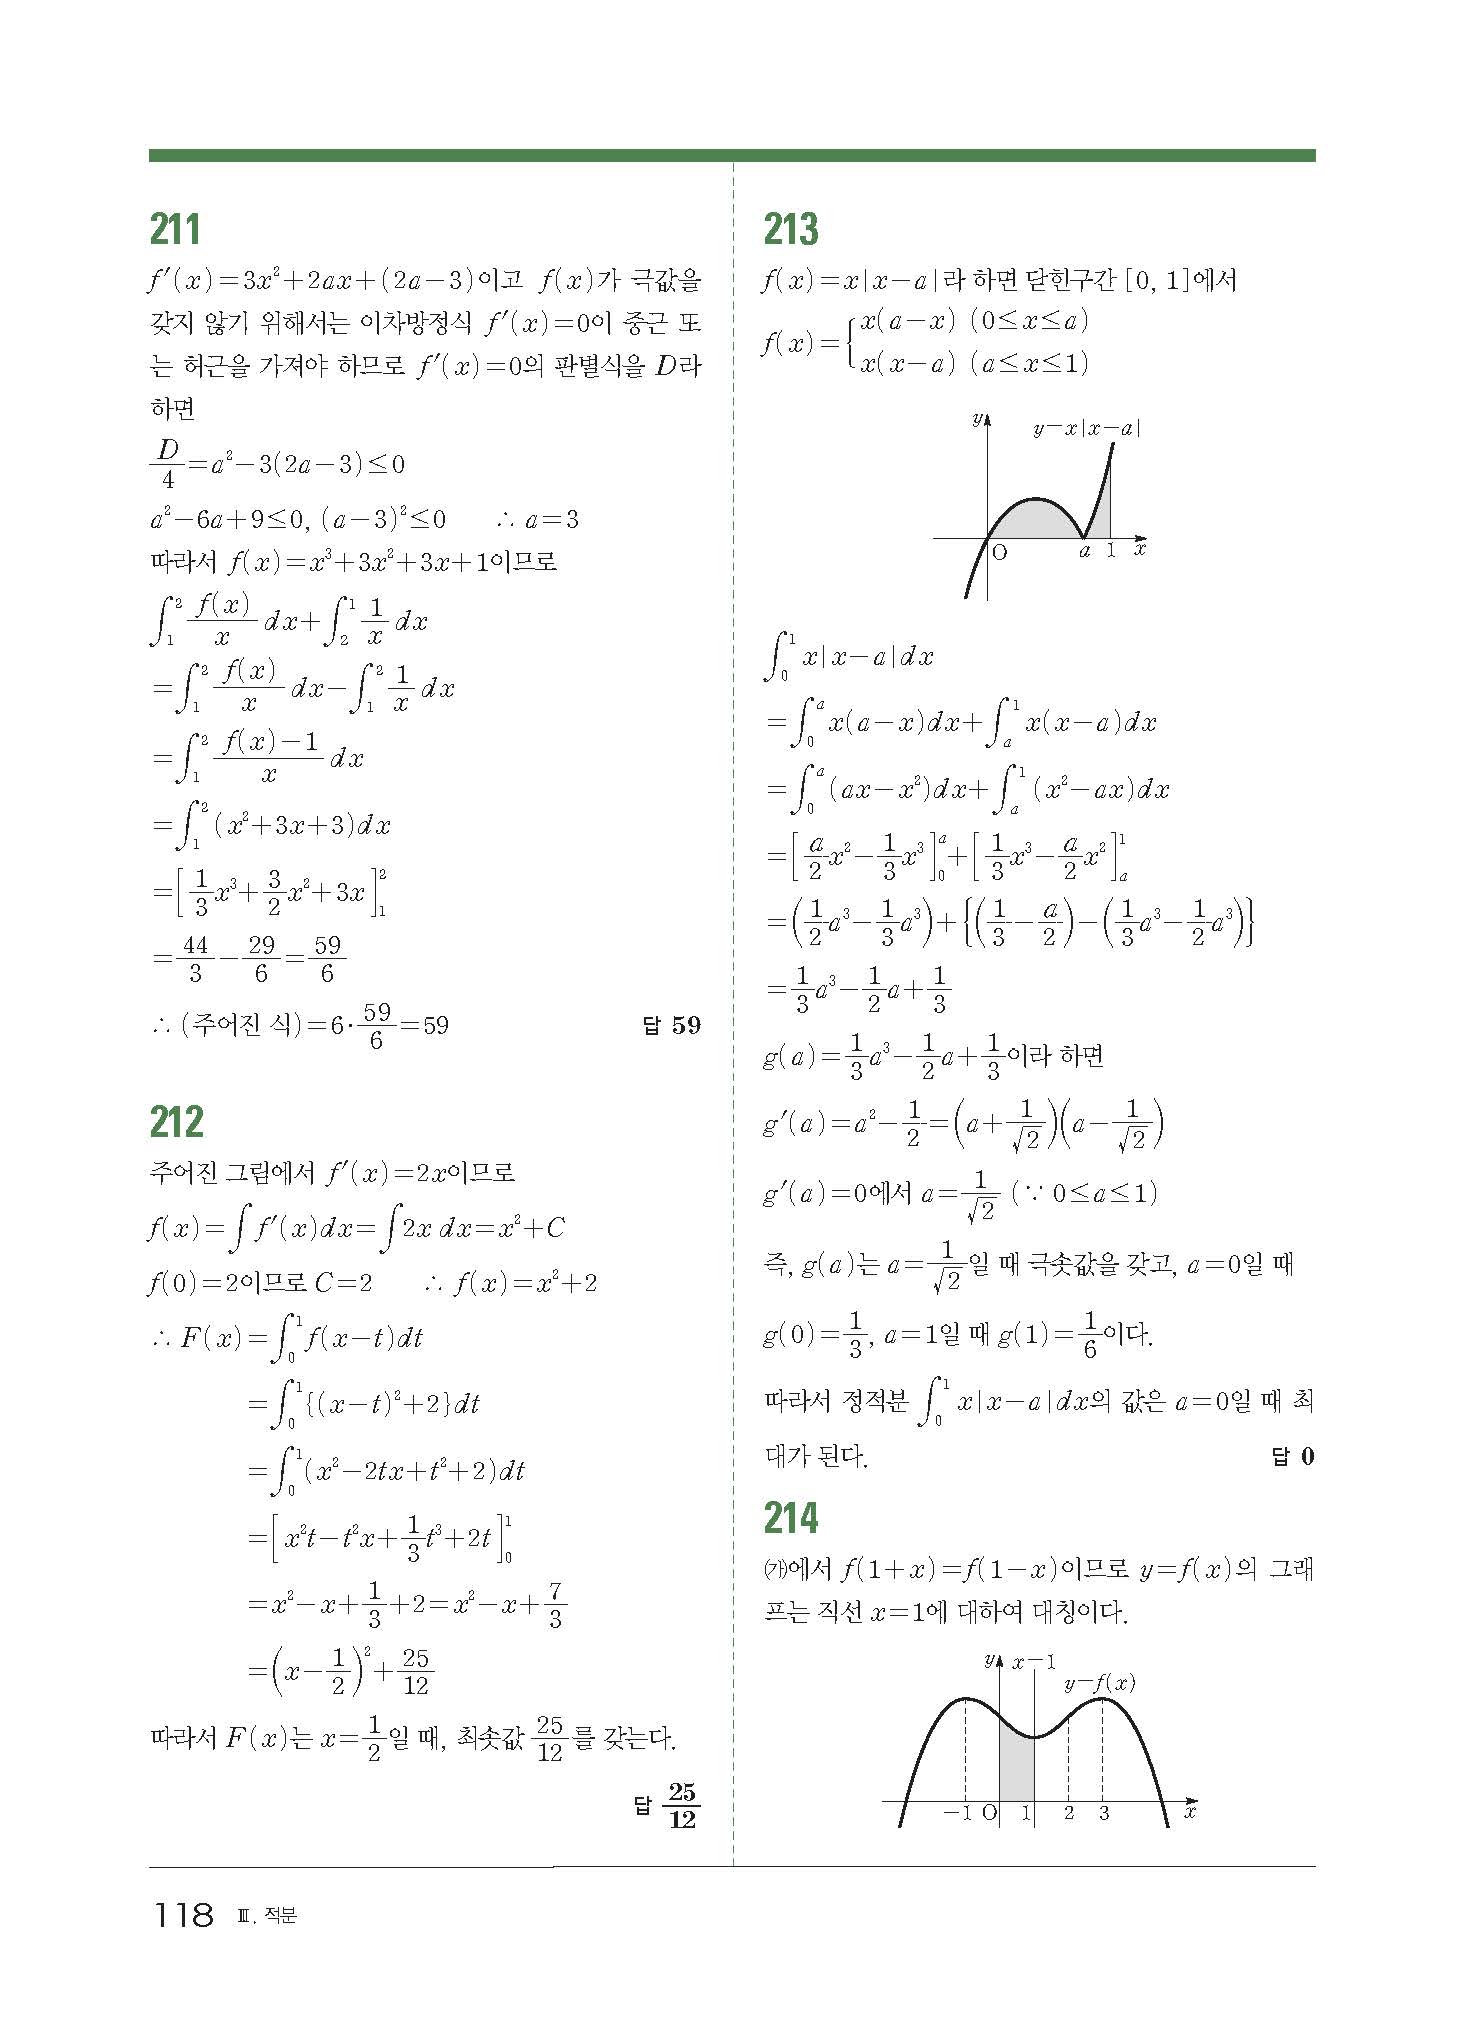 211
f′(x)=3x²+2ax+(2a-3)이고 f(x)가 극값을
갖지 않기 위해서는 이차방정식 f′(x)=0이 중근 또
는 허근을 가져야 하므로 f′(x)=0의 판별식을 D라
하면
D/4=a²-3(2a-3)≤0
a²-6a+9≤0, (a-3)²≤0 ∴ a=3
따라서 f(x)=x³+3x²+3x+1이므로
∫₁² f(x)/x dx+∫₂¹ 1/x dx
=∫₁² f(x)/x dx-∫₁² 1/x dx
=∫₁² (f(x)-1)/x dx
=∫₁² (x²+3x+3)dx
=[1/3 x³+3/2 x²+3x]₁²
=44/3-29/6=59/6
∴ (주어진 식)=6·59/6=59 답 59
212
주어진 그림에서 f′(x)=2x이므로
f(x)=∫f′(x)dx=∫2x dx=x²+C
f(0)=2이므로 C=2 ∴ f(x)=x²+2
∴ F(x)=∫₀¹ f(x-t)dt
=∫₀¹ {(x-t)²+2}dt
=∫₀¹ (x²-2tx+t²+2)dt
=[x²t-t²x+1/3 t³+2t]₀¹
=x²-x+1/3+2=x²-x+7/3
=(x-1/2)²+25/12
따라서 F(x)는 x=1/2일 때, 최솟값 25/12를 갖는다.
답 25/12
213
f(x)=x|x-a|라 하면 닫힌구간 [0, 1]에서
f(x)={x(a-x) (0≤x≤a)
x(x-a) (a≤x≤1)
y
y=x|x-a|
O a 1 x
∫₀¹ x|x-a|dx
=∫₀ᵃ x(a-x)dx+∫ₐ¹ x(x-a)dx
=∫₀ᵃ (ax-x²)dx+∫ₐ¹ (x²-ax)dx
=[a/2 x²-1/3 x³]₀ᵃ+[1/3 x³-a/2 x²]ₐ¹
=(1/2 a³-1/3 a³)+{(1/3-a/2)-(1/3 a³-1/2 a³)}
=1/3 a³-1/2 a+1/3
g(a)=1/3 a³-1/2 a+1/3이라 하면
g′(a)=a²-1/2=(a+1/√2)(a-1/√2)
g′(a)=0에서 a=1/√2 (∵ 0≤a≤1)
즉, g(a)는 a=1/√2일 때 극솟값을 갖고, a=0일 때
g(0)=1/3, a=1일 때 g(1)=1/6이다.
따라서 정적분 ∫₀¹ x|x-a|dx의 값은 a=0일 때 최
대가 된다. 답 0
214
㈎에서 f(1+x)=f(1-x)이므로 y=f(x)의 그래
프는 직선 x=1에 대하여 대칭이다.
y x=1
y=f(x)
-1 O 1 2 3 x
118 Ⅲ. 적분